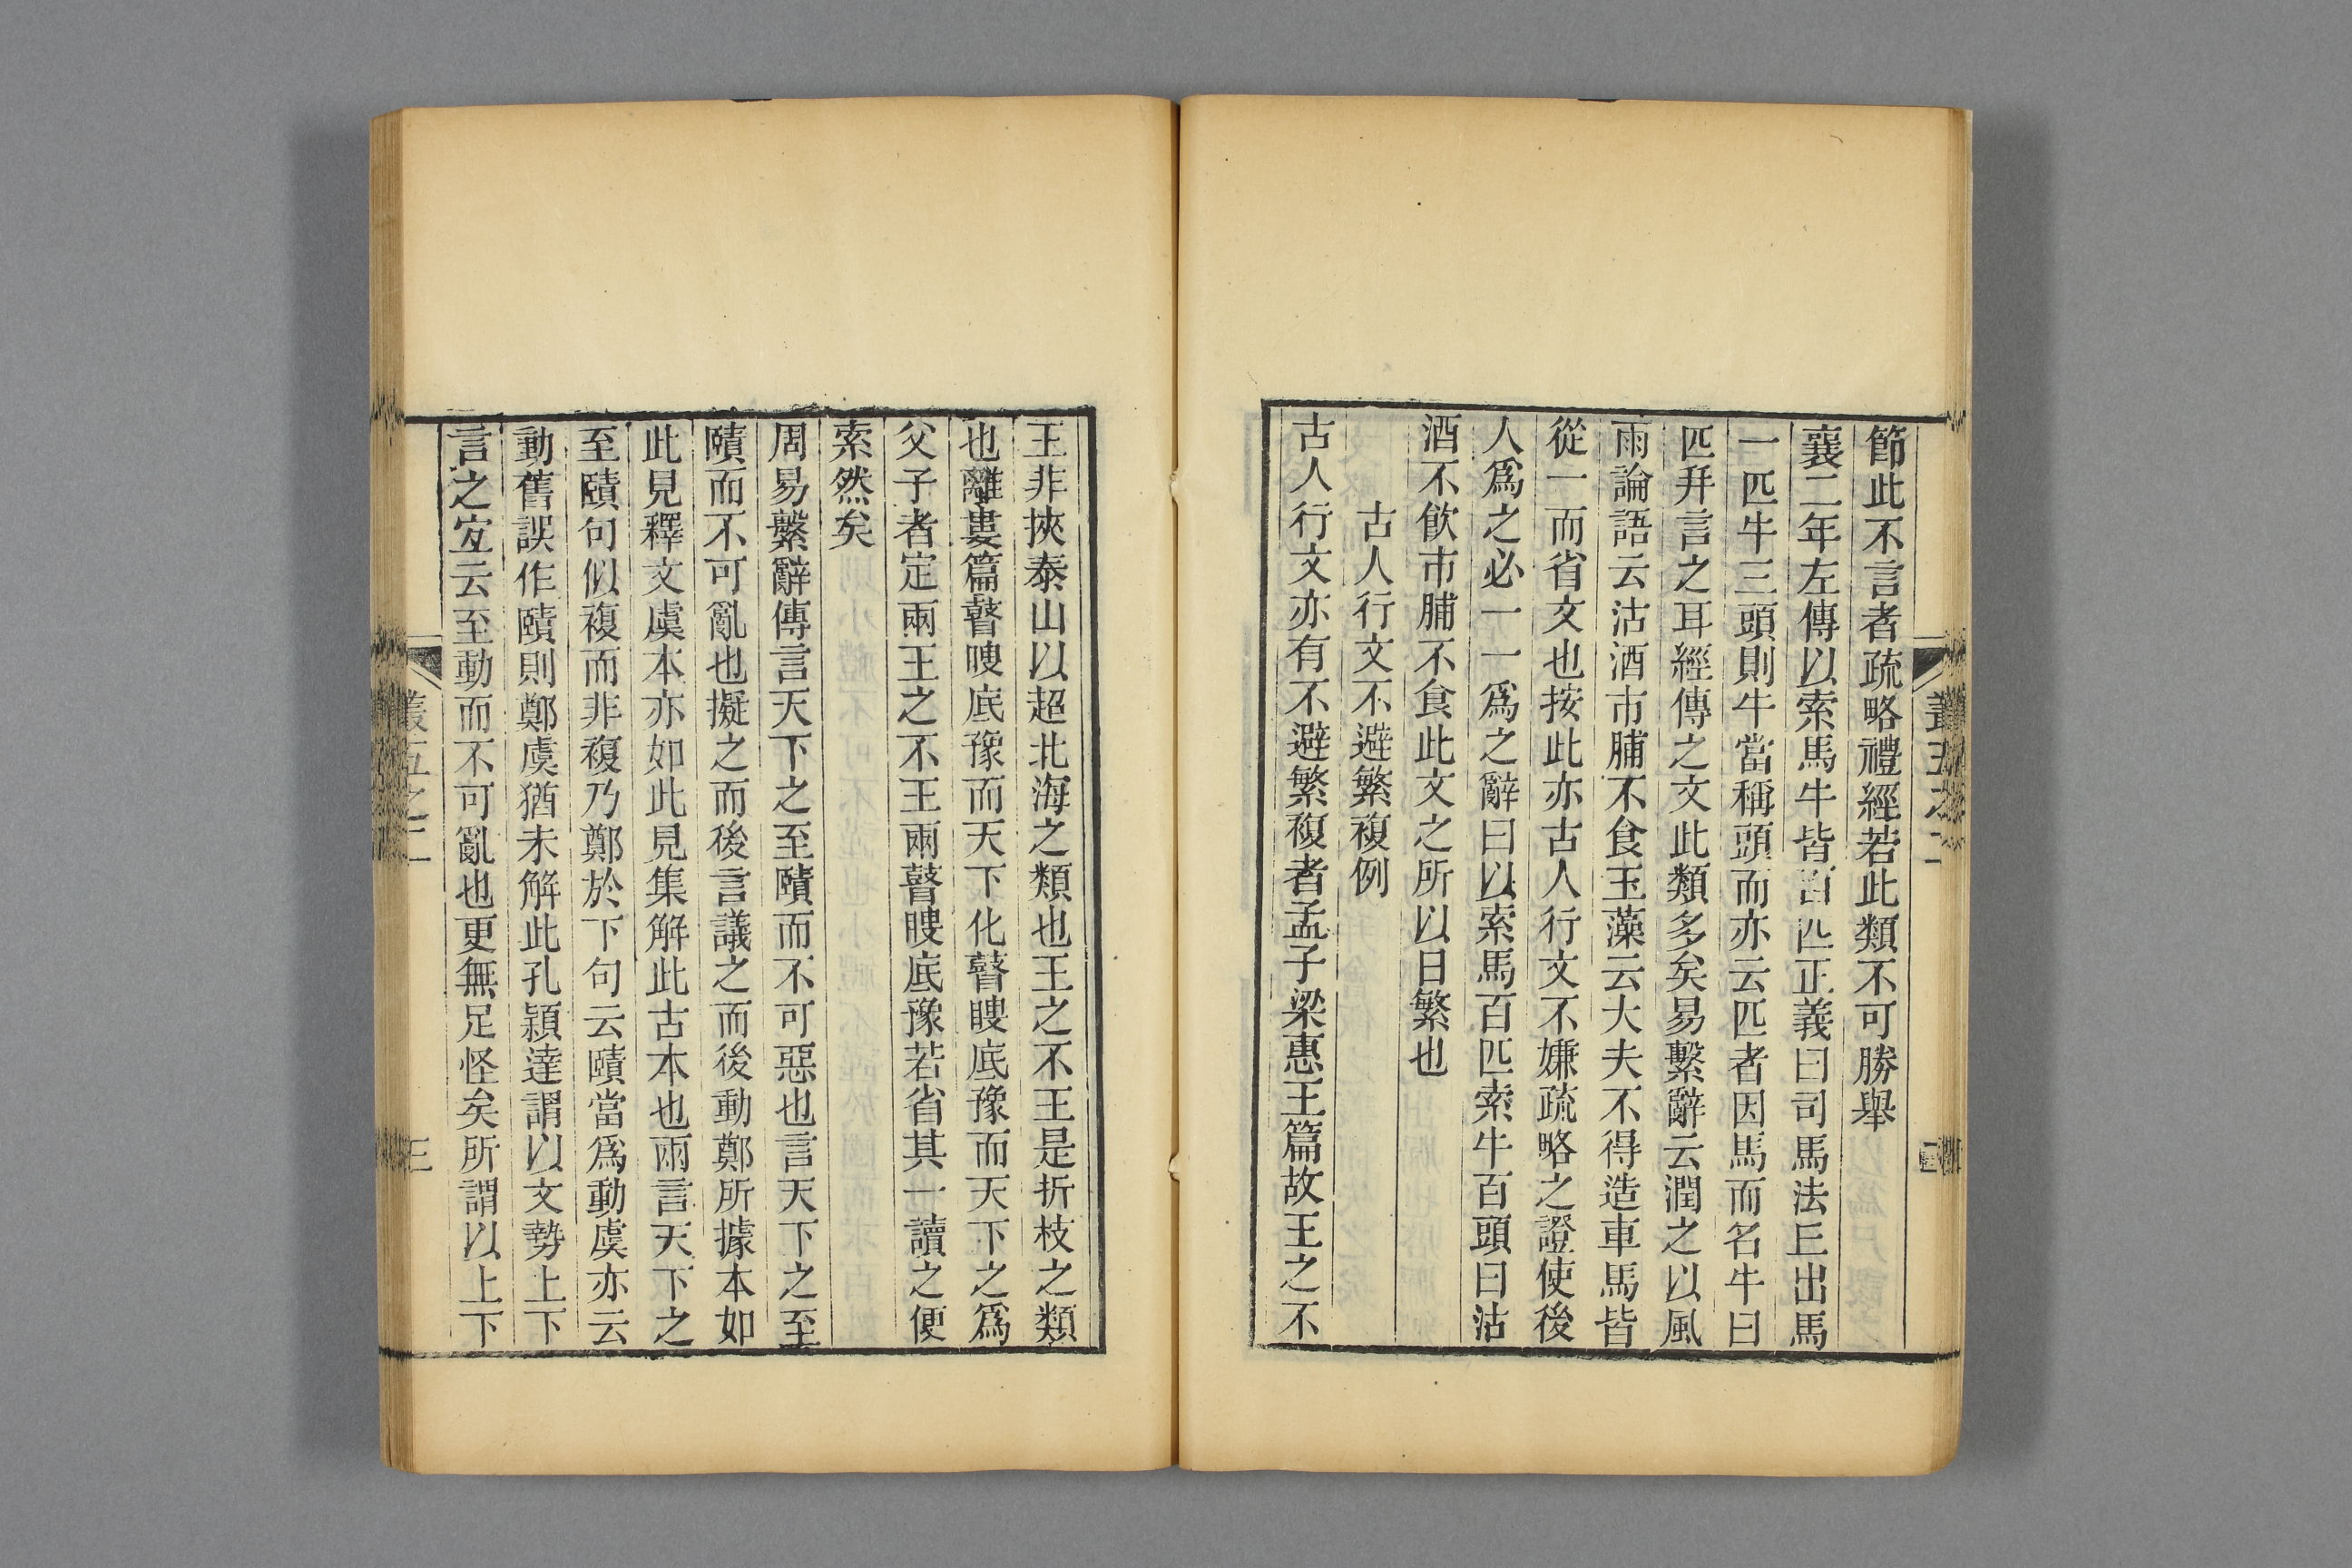 節此不言者疏略禮經若此類不可勝舉
襄二年左傳以索馬牛皆百匹正義曰司馬法丘出馬
一匹牛三頭則牛當稱頭而亦云匹者因馬而名牛曰
匹幷言之耳經傳之文此類多矣易繫辭云潤之以風
雨論語云沽酒市脯不食玉藻云大夫不得造車馬皆
從一而省文也按此亦古人行文不嫌疏略之證使後
人爲之必一一爲之辭曰以索馬百匹索牛百頭曰沽
酒不飮市脯不食此文之所以日繁也
古人行文不避繁複例
古人行文亦有不避繁複者孟子梁惠王篇故王之不
王非挾泰山以超北海之類也王之不王是折枝之類
也離婁篇瞽瞍底豫而天下化瞽瞍底豫而天下之爲
父子者定兩王之不王兩瞽瞍底豫若省其一讀之便
索然矣
周易繫辭傳言天下之至賾而不可惡也言天下之至
賾而不可亂也擬之而後言議之而後動鄭所據本如
此見釋文虞本亦如此見集解此古本也兩言天下之
至賾句似複而非複乃鄭於下句云賾當爲動虞亦云
動舊誤作賾則鄭虞猶未解此孔穎達謂以文勢上下
言之宐云至動而不可亂也更無足怪矣所謂以上下
叢五之二
三